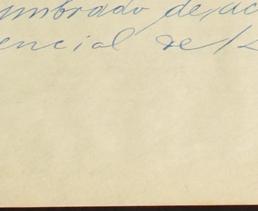 umbrado de ac
encial de l